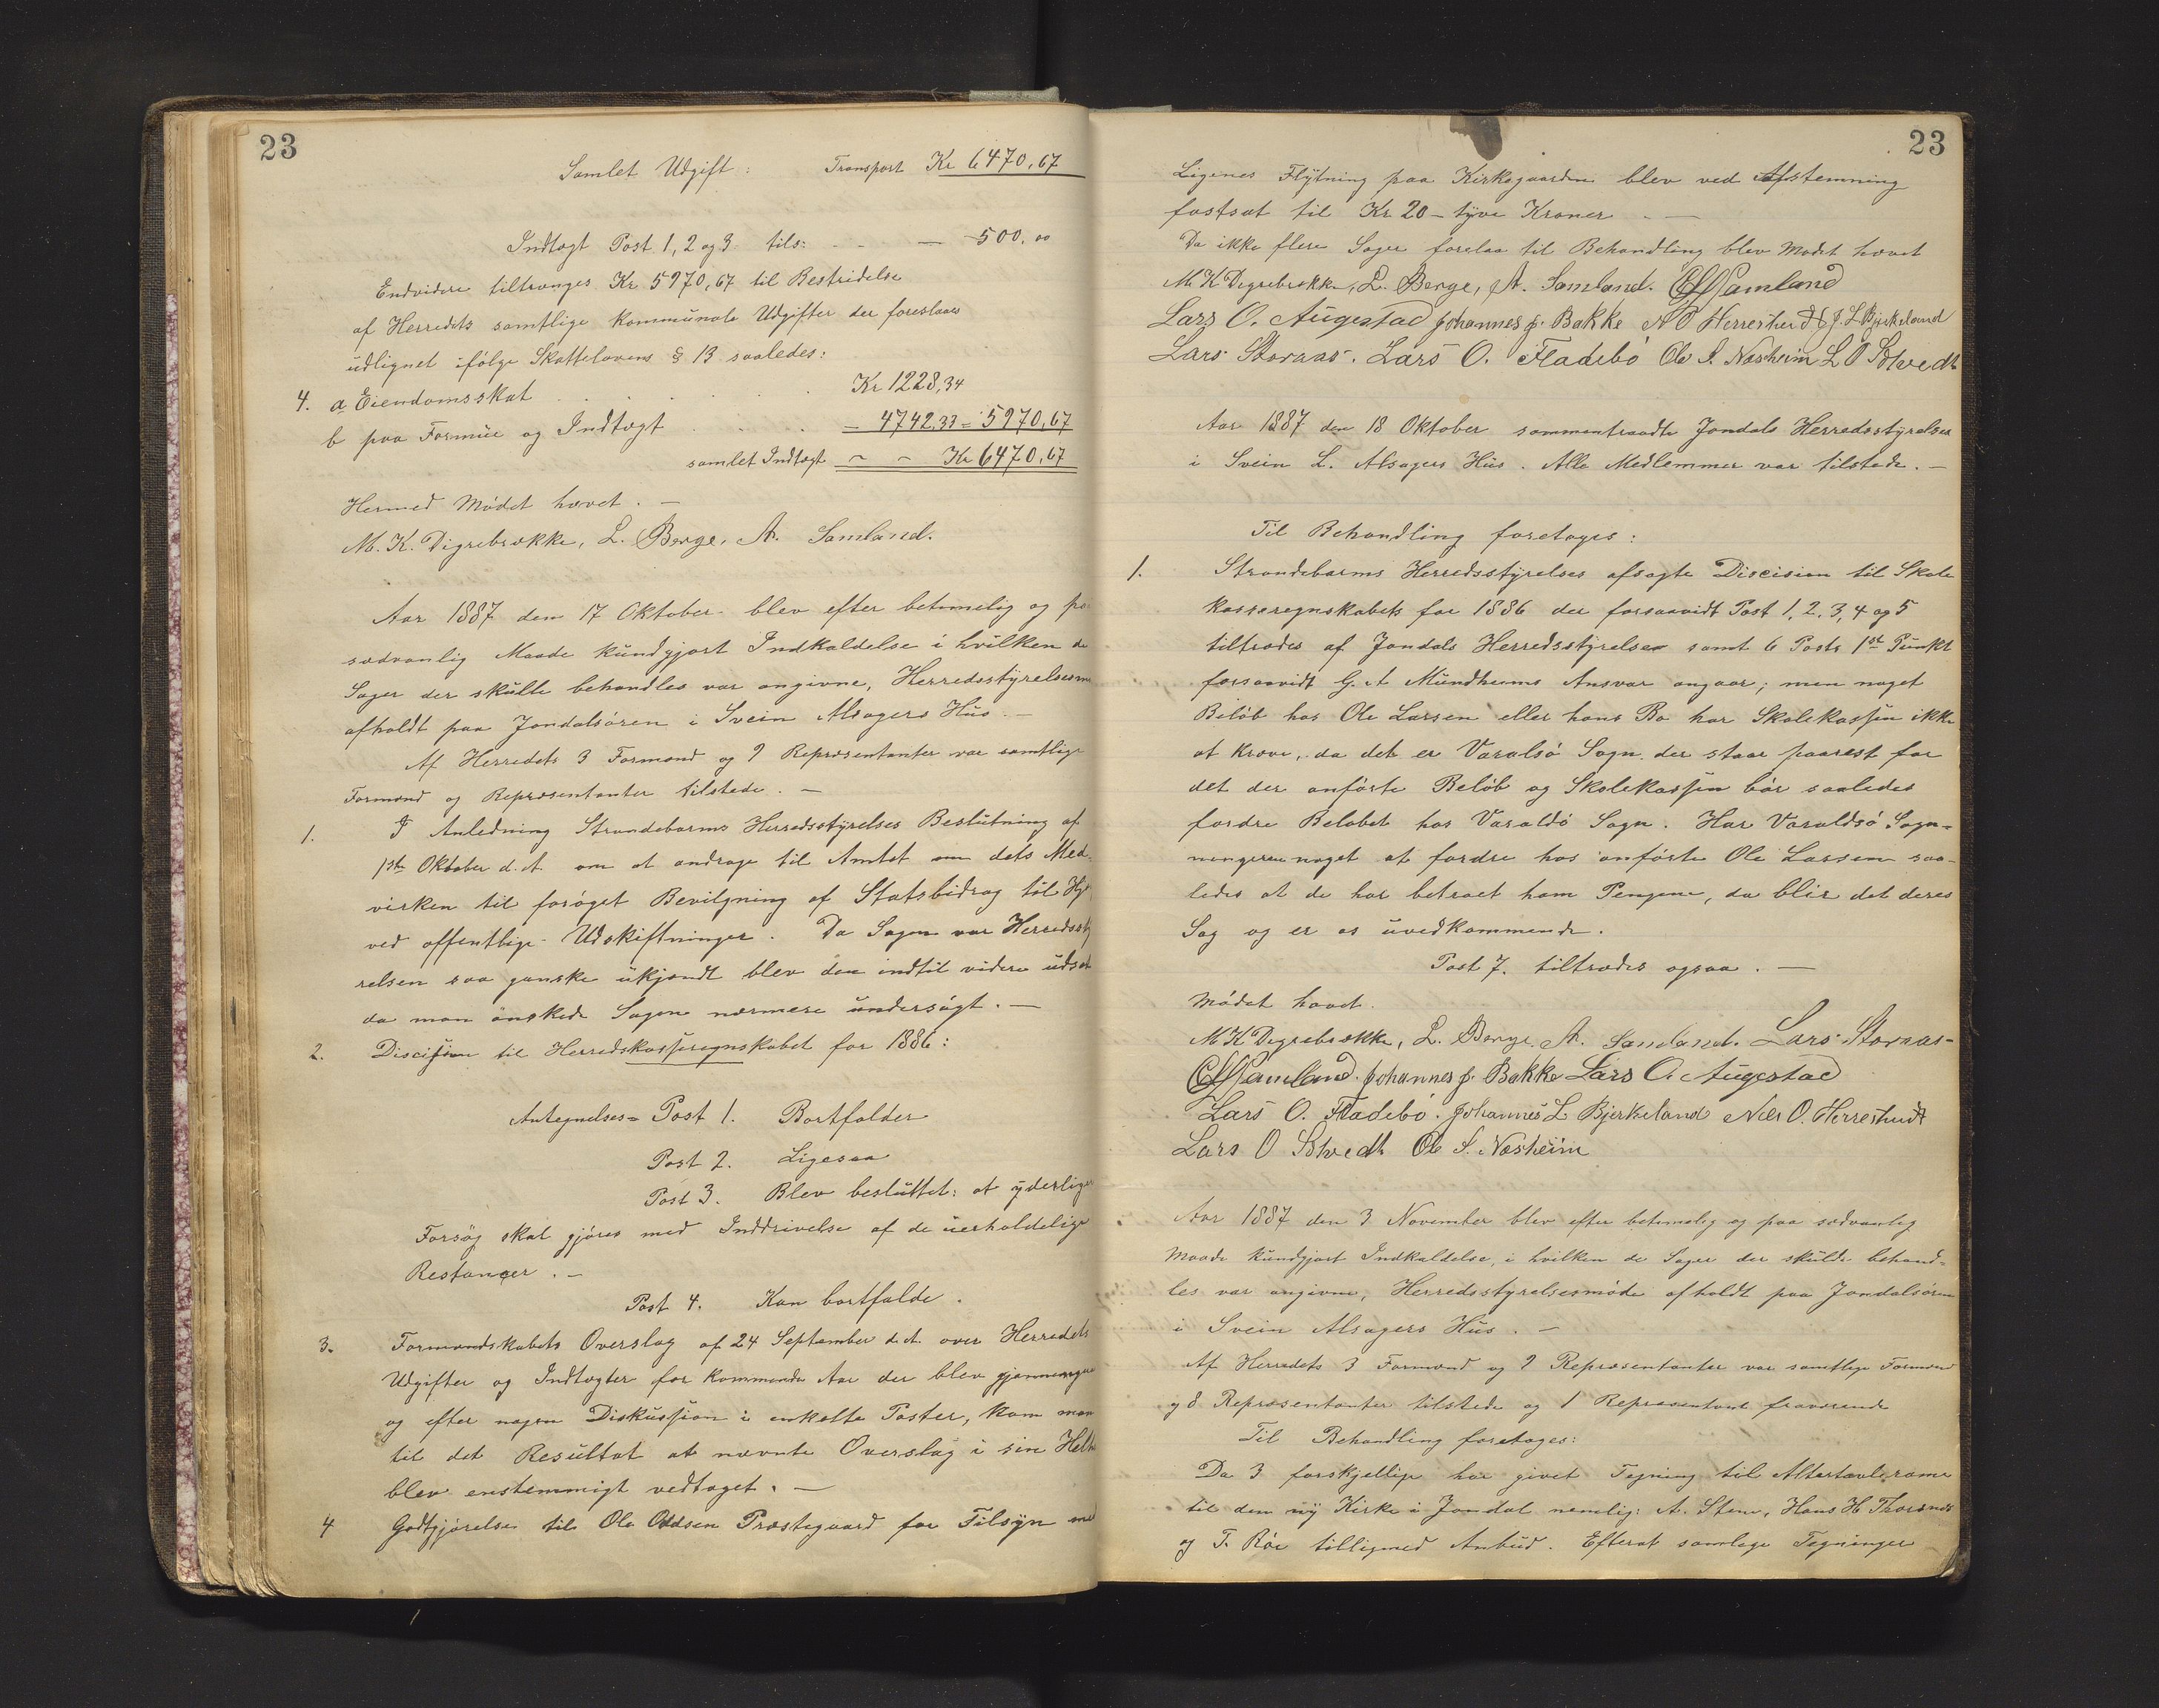 23
Samlet Udgift: Transport Kr 6470,67
Indtægt Post 1, 2 og 3 tils: — 500,00
Endvidere tiltrænges Kr 5970,67 til Bestridelse
af Herredets samtlige kommunale Udgifter der foreslaaes
udlignet ifølge Skattelovens § 13 saaledes:
4. a Eiendomsskat Kr 1228,34
b paa Formue og Indtægt — 4742,33 = 5970,67
samlet Indtægt Kr 6470,67
Hermed Mødet hævet. —
M. K. Digrebrække, L. Berge, A. Samland.
Aar 1887 den 17 Oktober blev efter betimelig og paa
sædvanlig Maade kundgjort Indkaldelse i hvilken de
Sager der skulle behandles var angivne, Herredsstyrelsesmø
afholdt paa Jondalsøren i Svein Alsagers Hus. —
Af Herredets 3 Formænd og 9 Repræsentanter var samtlige
Formænd og Repræsentanter tilstede. —
1. I Anledning Strandebarms Herredsstyrelses Beslutning af
1ste Oktober d. A. om at andrage til Amtet om dets Med-
virken til forøget Bevilgning af Statsbidrag til Hj
ved offentlige Udskiftninger. Da Sagen var Herredssty
relsen saa ganske ukjendt blev den indtil videre udsat
da man ønskede Sagen nærmere undersøgt. —
2. Discision til Herredskasseregnskabet for 1886:
Antegnelses= Post 1. Bortfalder
Post 2. Ligesaa
Post 3. Blev besluttet: at yderliger
Forsøg skal gjøres med Inddrivelse af de uerholdelige
Restancer. —
Post 4. Kan bortfalde.
3. Formandskabets Overslag af 24 September d. A. over Herredets
Udgifter og Indtægter for kommende Aar der blev gjennemgaa
og efter nogen Diskussion i enkelte Poster, kom man
til det Resultat at nævnte Overslag i sin Helh
blev enstemmigt vedtaget. —
4 Godtgjørelse til Ole Oddsen Præstegaard for Tilsyn med
23
Ligenes Flytning paa Kirkegaarden blev ved Afstemning
fastsat til Kr 20 — tyve Kroner. —
Da ikke flere Sager forelaa til Behandling blev Mødet hævet
M K Digrebrække, L. Berge, A. Samland. Samland
Lars O. Augestad Johannes J. Bakke N O Herrestvedt J. L Bjerkeland
Lars Storaas. Lars O. Fladebø Ole S. Næsheim L O Solvedt
Aar 1887 den 18 Oktober sammentraadte Jondals Herredsstyrelse
i Svein L. Alsagers Hus. Alle Medlemmer var tilstede. —
Til Behandling foretoges:
1. Strandebarms Herredsstyrelses afsagte Discision til Skole
kasseregnskabets for 1886 der forsaavidt Post 1, 2, 3, 4 og 5
tiltrædes af Jondals Herredsstyrelse samt 6 Posts 1ste Punkt
forsaavidt G. A Mundheims Ansvar angaar; men noget
Beløb hos Ole Larsen eller hans Bo har Skolekassen ikke
at kræve, da det er Varalsø Sogn der staar paarest for
det der anførte Beløb og Skolekassen bør saaledes
fordre Beløbet hos Varaldsø Sogn. Har Varaldsø Sogn=
ningeren noget at fordre hos anførte Ole Larsen saa-
ledes at de har betroet ham Pengene, da blir det deres
Sag og er os uvedkommende.
Post 7. tiltrædes ogsaa. —
Mødet hævet.
M K Digrebrække, L. Berge A. Samland. Lars Storaas-
Samland. Johannes J. Bakke Lars O. Augestad
Lars O. Fladebø. Johannes L Bjerkeland Nils O. Herrestvedt
Lars O Solvedt Ole S. Næsheim
Aar 1887 den 3 November blev efter betimelig og paa sædvanlig
Maade kundgjort Indkaldelse, i hvilken de Sager der skulde behand=
les var angivne, Herredsstyrelsesmøde afholdt paa Jondalsøren
i Svein Alsagers Hus. —
Af Herredets 3 Formænd og 9 Repræsentanter var samtlige Formænd
og 8 Repræsentanter tilstede og 1 Repræsentant fraværende
Til Behandling foretoges:
Da 3 forskjellige har givet Tegning til Altertavleramme
til den ny Kirke i Jondal nemlig: A. Stene, Hans H Thorsnes
og T. Røe tilligemed Anbud. Efterat samlige Tegninger